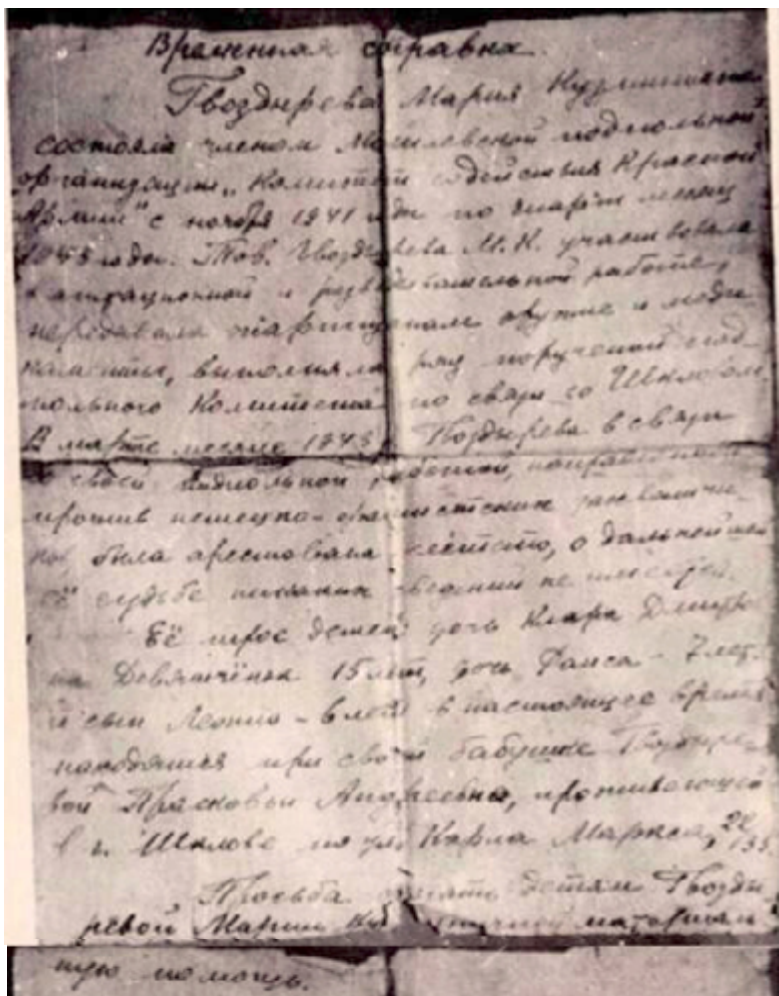 Временная справка.
Гвоздырева Мария Кузьминична
состояла членом Могилевской подпольной
организации „Комитет содействия Красной
Армии" с ноября 1941 года по март месяц
1943 года. Тов. Гвоздырева М.К. участвовала
в агитационной и разведывательной работе,
передавала партизанам оружие и меди-
каменты, выполняла ряд поручений под-
польного Комитета по связи со Шкловом.
В марте месяце 1943 Гвоздырева в связи
со своей подпольной работой, направленной
против немецко-фашистских захватчи-
ков была арестована гестапо, о дальнейшей
её судьбе никаких сведений не имеется.
Её трое детей дочь Клара Дмитри-
на Девятчёнок 15 лет, дочь Раиса - 7 лет
и сын Леонид - лет в настоящее время
находятся при своей бабушке Гвоздыре-
вой Прасковьи Андреевны, проживающей
в г. Шклове по ул. Карла Маркса,
Просьба оказать детям Гвозды-
ревой Марии Кузьминичной материаль-
ную помощь.